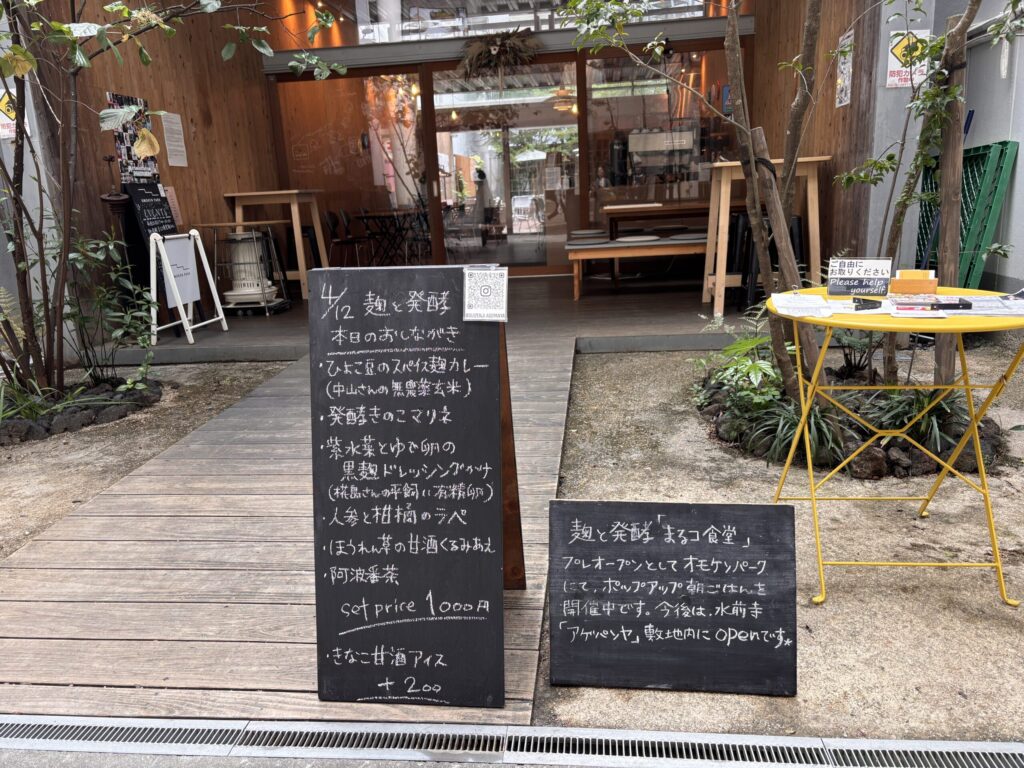 4/12 麹と発酵
本日のおしながき
・ひよこ豆のスパイス麹カレー
(中山さんの無農薬玄米)
・発酵きのこマリネ
・紫水菜とゆで卵の
黒麹ドレッシングがけ
(椛島さんの平飼い有精卵)
・人参と柑橘のラペ
・ほうれん草の甘酒くるみあえ
・阿波番茶
set price 1000円
・きなこ甘酒アイス
+200
麹と発酵「まるコ食堂」
プレオープンとしてオモケンパーク
にて、ポップアップ朝ごはんを
開催中です。今後は、水前寺
「アゲパンヤ」敷地内にopenです。
ご自由に
お取りください
Please help
yourself
防犯カメラ